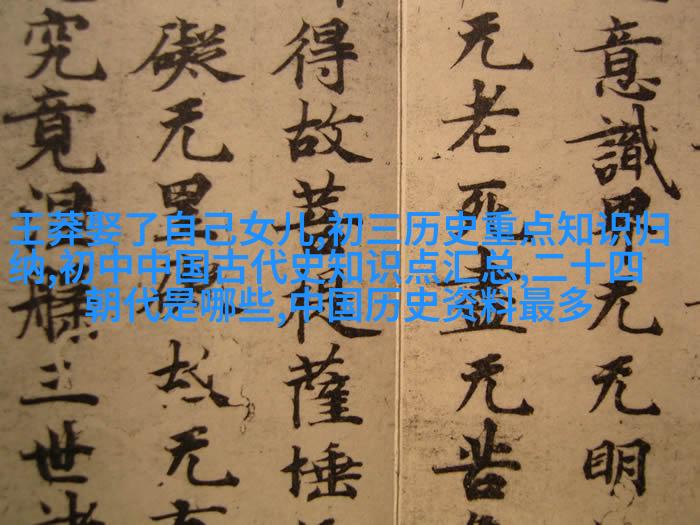 王莽娶了自己女儿,初三历史重点知识归
纳,初中中国古代史知识点汇总,二十四
朝代是哪些,中国历史资料最多
意識界无无明
无老死盡无苦
得故菩提薩埵
礙无罣礙故无
究竟涅槃三世諸